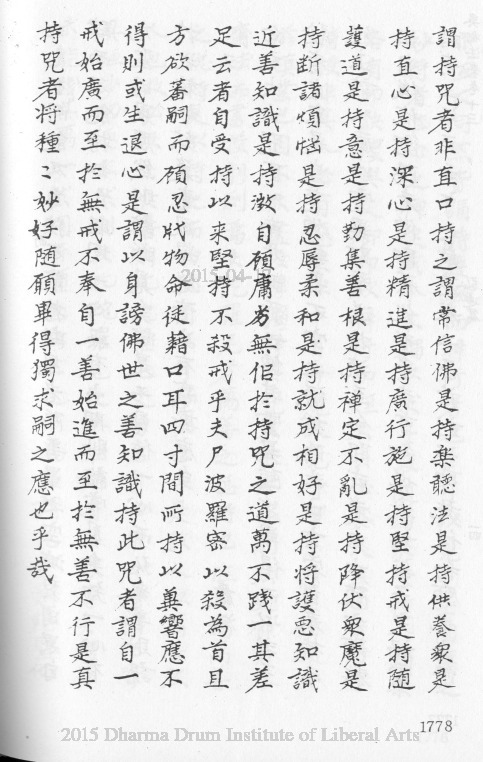 謂持咒者非直口持之謂常信佛是持樂聽法是持供養眾是
持直心是持深心是持精進是持廣行施是持堅持戒是持隨
護道是持意是持勤集善根是持禅定不亂是持降伏眾魔是
持断諸煩惱是持忍辱柔和是持就成相好是持将護惡知識
近善知識是持澂自顧庸劣無佀於持咒之道萬不踐一其差
足云者自受持以来堅持不殺戒乎夫尸波羅宻以殺為首且
方欲蕃嗣而顧忍戕物命徒藉口耳四寸間所持以冀響應不
得則或生退心是謂以身謗佛世之善知識持此咒者謂自一
戒始廣而至於無戒不奉自一善始進而至於無善不行是真
持咒者将種〻妙好随願畢得獨求嗣之應也乎哉
2015-04-
1778
2015 Dharma Drum Institute of Liberal Arts